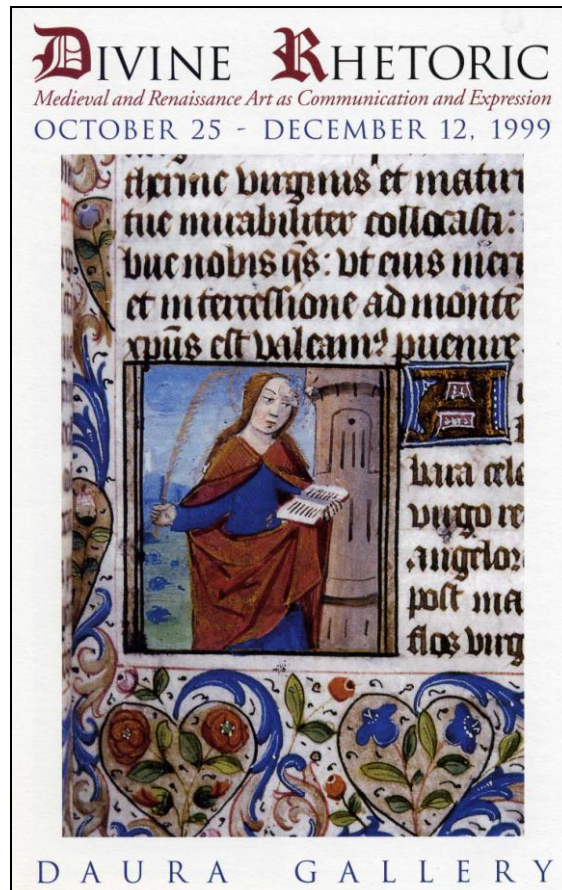 DIVINE RHETORIC
Medieval and Renaissance Art as Communication and Expression
OCTOBER 25 - DECEMBER 12, 1999
therine virginis et matiri
tue mirabiliter collocasti:
bue nobis q̄s: vt eius meri
et intercessione ad monte
xpūs est valeamꝰ puenire
A
bara cele
virgo re
angeloꝝ
post ma
flos virg
DAURA GALLERY